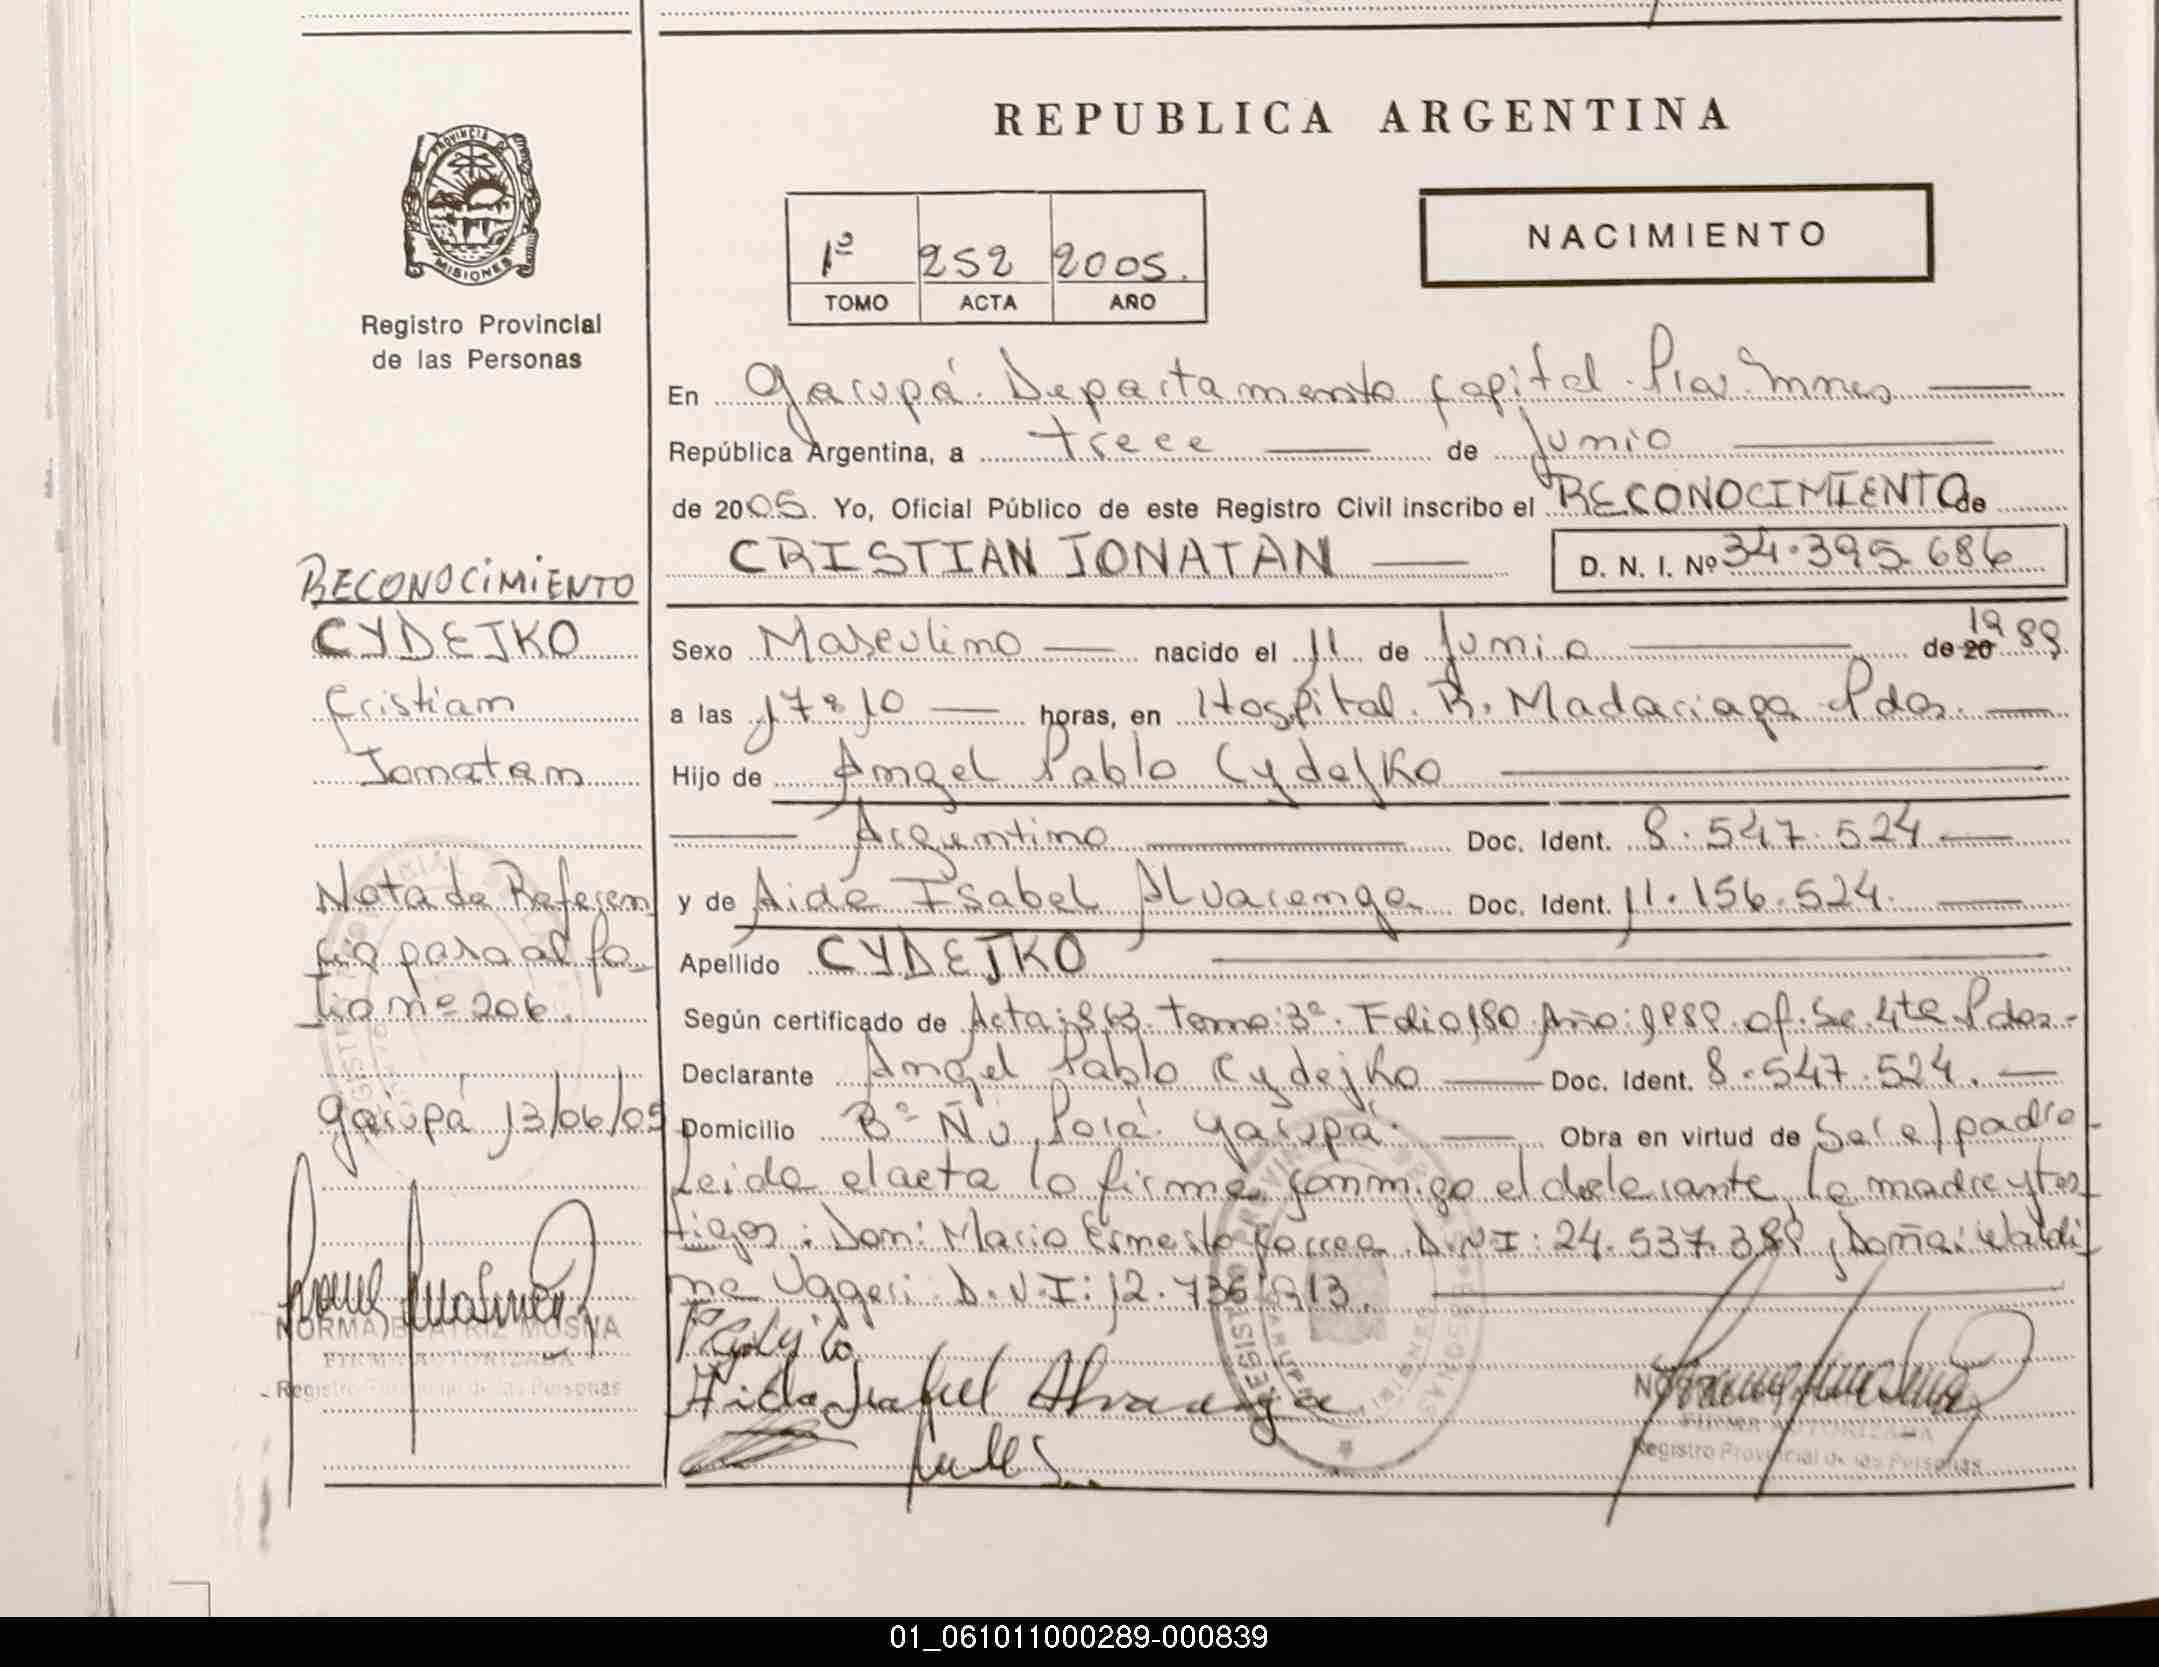 REPUBLICA ARGENTINA
PROVINCIA DE
MISIONES
Registro Provincial
de las Personas
1º 252 2005.
TOMO ACTA AÑO
NACIMIENTO
En Garupá. Departamento Capital. Pcia. Mnes
República Argentina, a trece de Junio
de 2005. Yo, Oficial Público de este Registro Civil inscribo el RECONOCIMIENTO de
CRISTIAN JONATAN D. N. I. Nº 34.395.686
RECONOCIMIENTO
CYDEJKO
Cristian
Jonatan
Nota de Referen
cia para al fo
lio nº 206.
Garupá 13/06/05
NORMA BEATRIZ MOSNA
FIRMA AUTORIZADA
Registro Provincial de las Personas
Sexo Masculino nacido el 11 de Junio de 20 1989
a las 17:10 horas, en Hospital. R. Madariaga Pdas.
Hijo de Angel Pablo Cydejko
Argentino Doc. Ident. 8.547.524
y de Aida Isabel Alvarenga Doc. Ident. 11.156.524.
Apellido CYDEJKO
Según certificado de Acta: 863. Tomo: 3º. Folio 180 Año: 1989. of. Se. 4ta Pdas.
Declarante Angel Pablo Cydejko Doc. Ident. 8.547.524.
Domicilio Bº Ñu Porá. Garupá. Obra en virtud de Ser el padre
Leida el acta la firma conmigo el declarante, la madre y tes
tigos: Don: Mario Ernesto Correa D.N.I: 24.537.389, Doña: Waldi
na Uggeri: D.N.I: 12.736.913.
Aida Isabel Alvarenga
FIRMA AUTORIZADA
Registro Provincial de las Personas
01_061011000289-000839